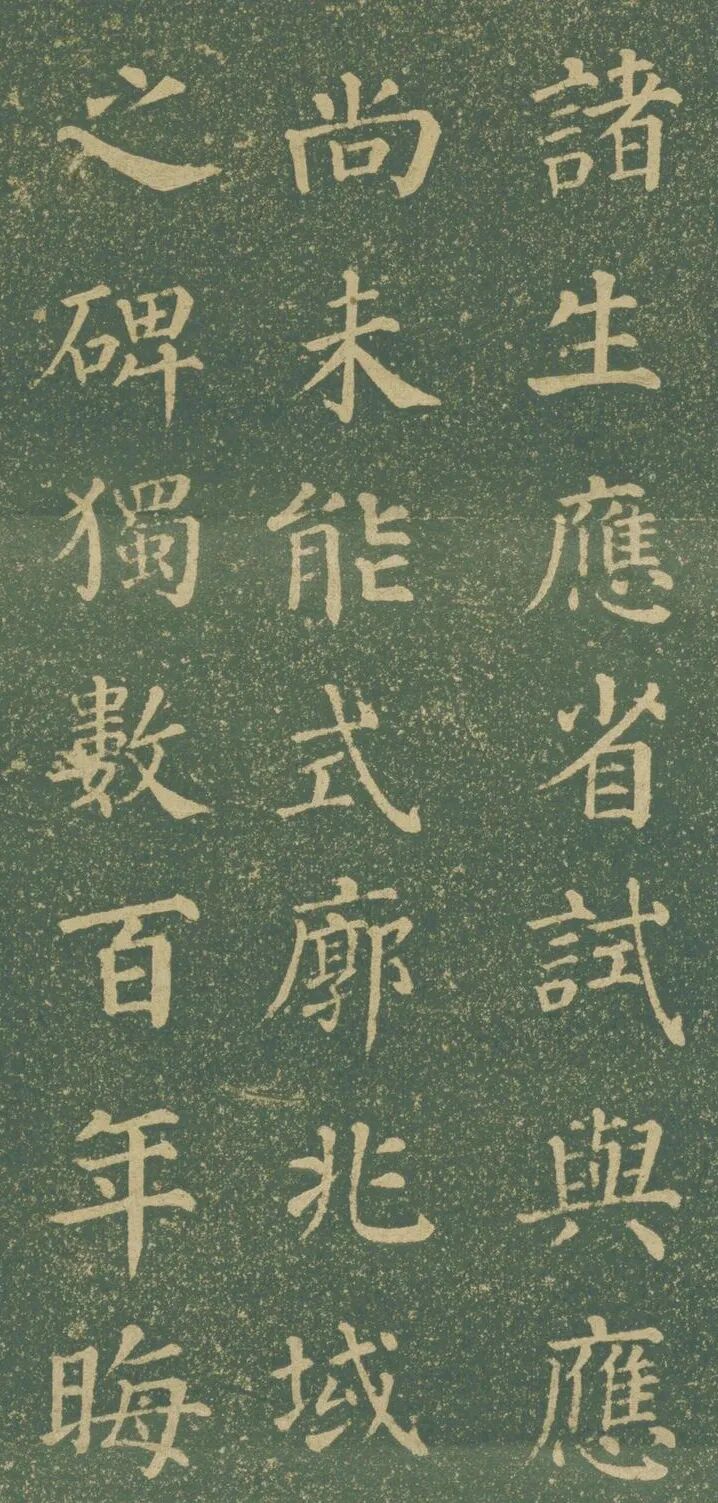 諸生應省試與應
尚未能式廓兆域
之碑獨數百年晦